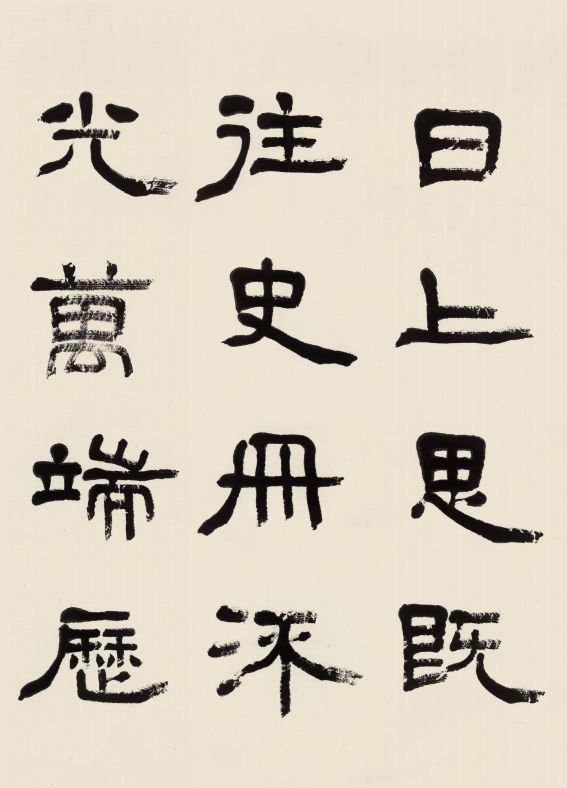 日上思既
往史冊
光萬端歷